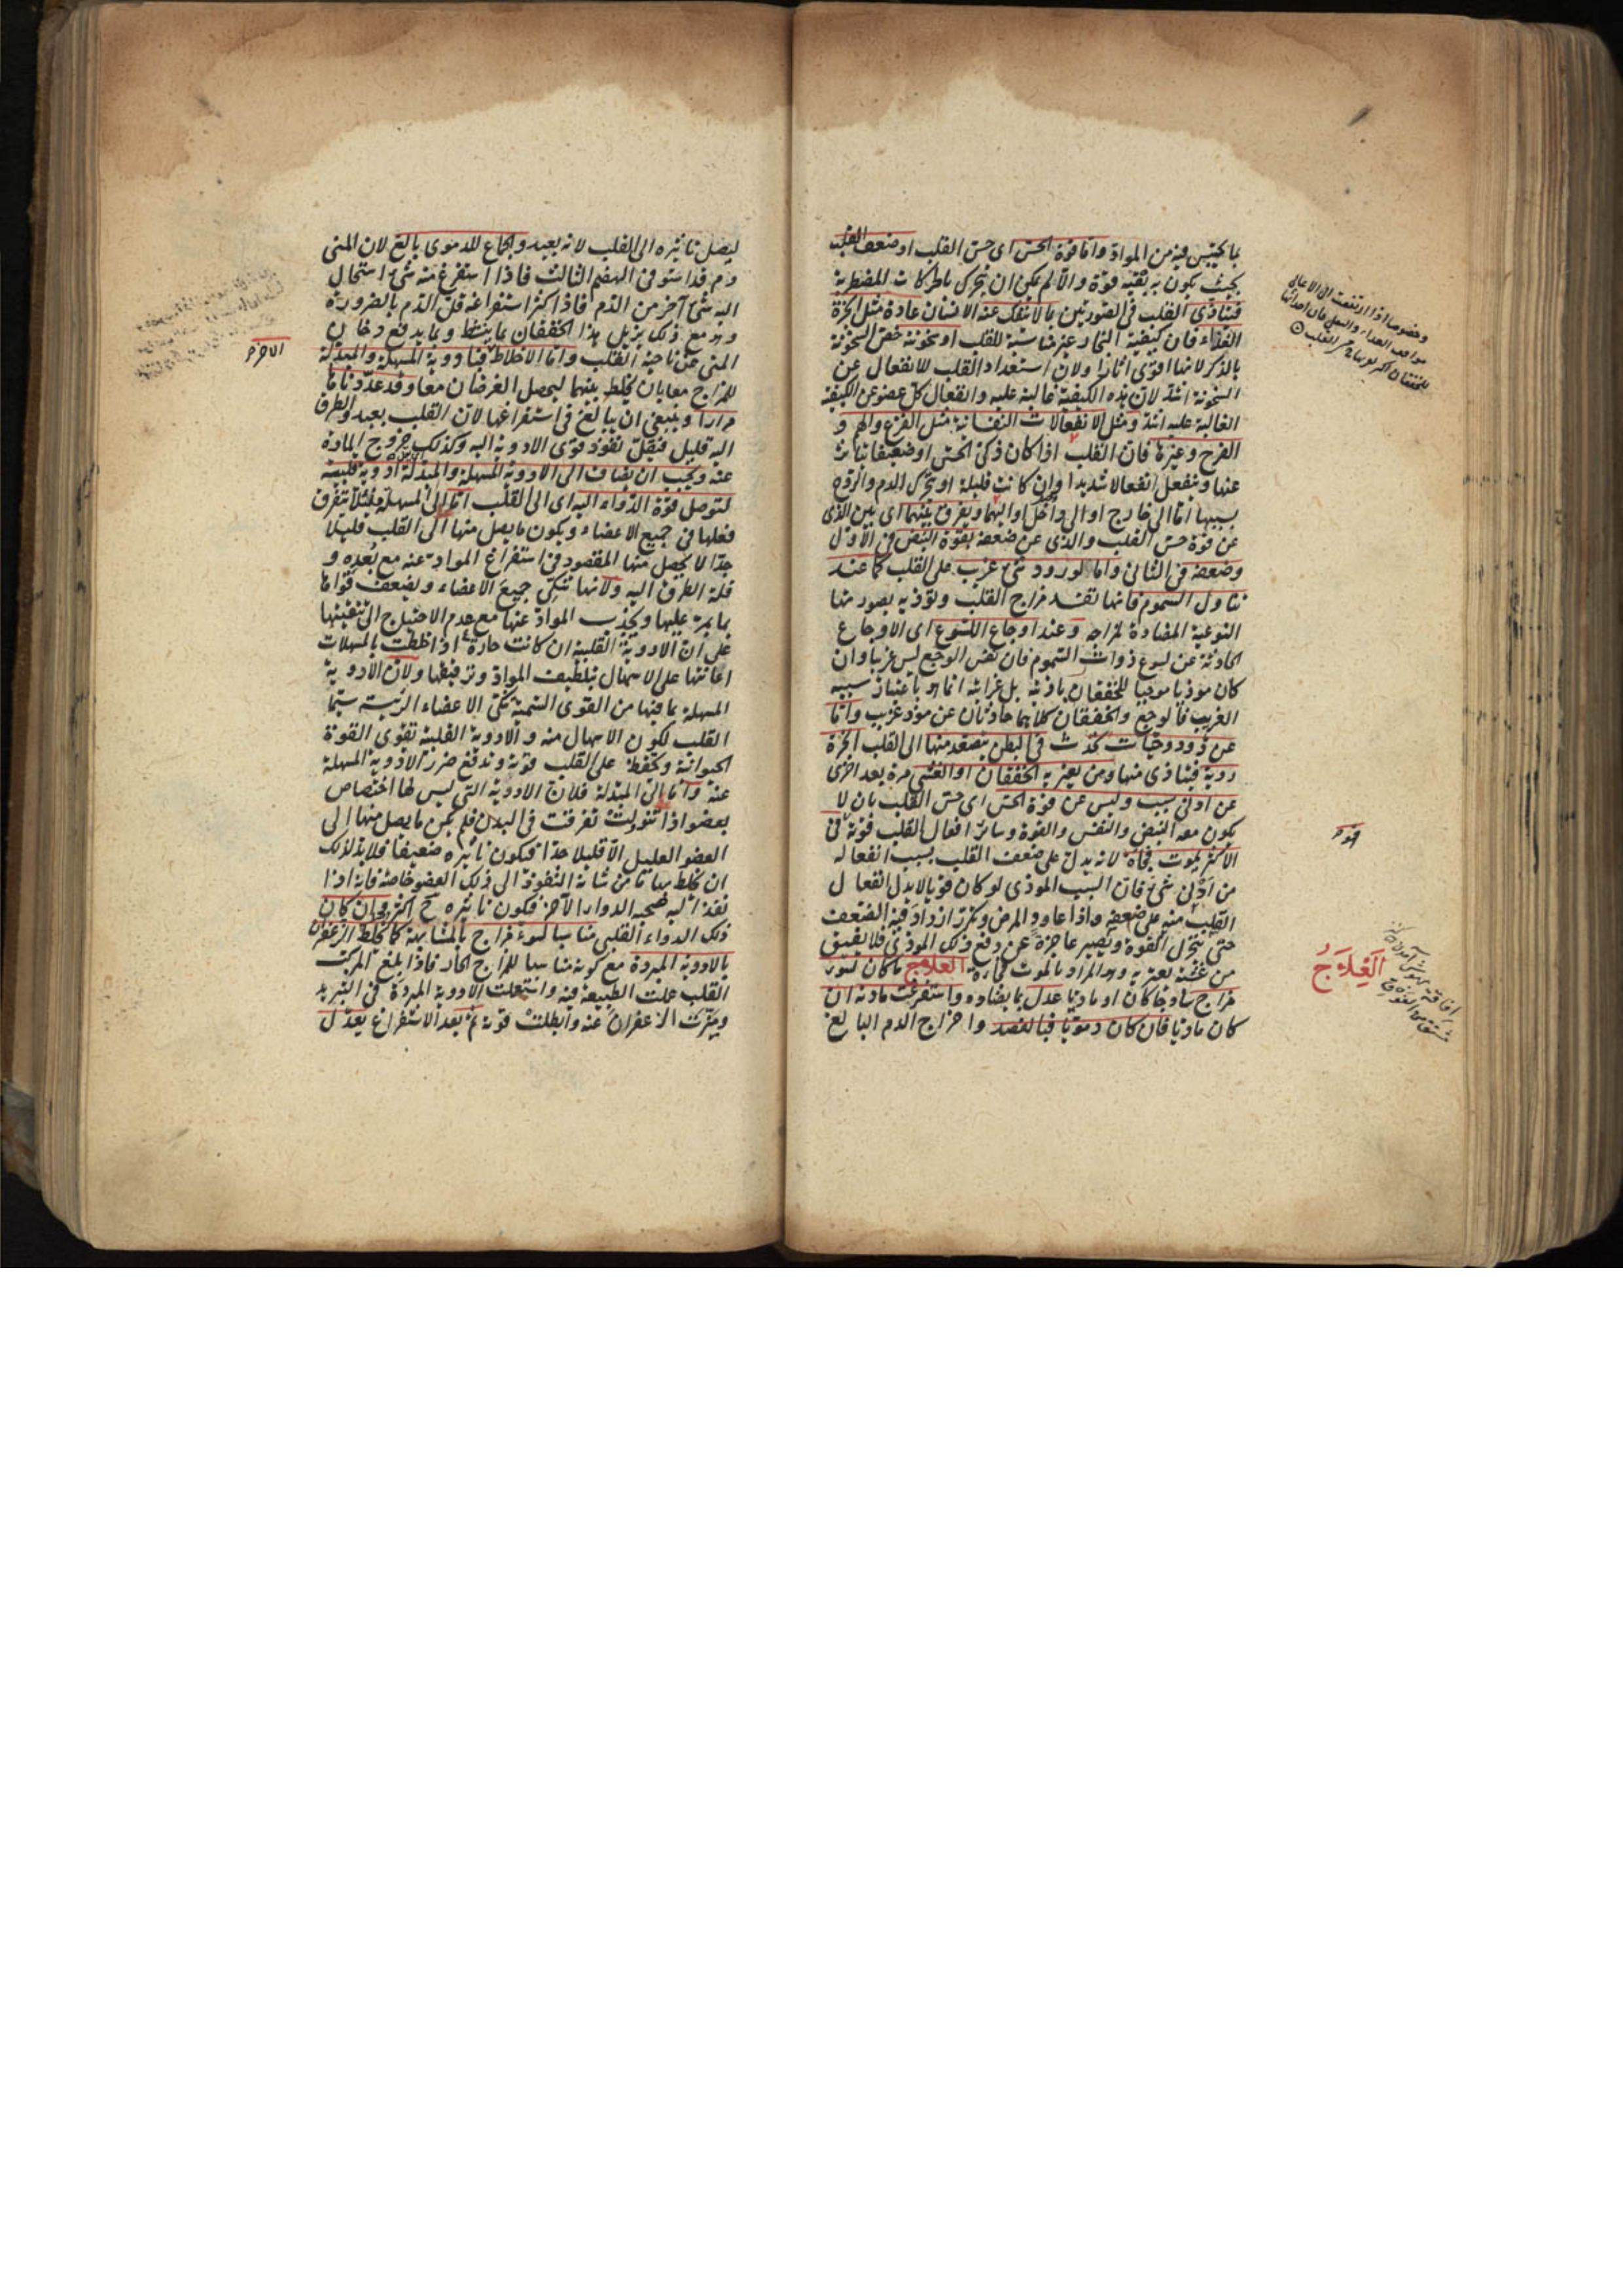 بما يحتبس فيه من المواد واما قوة الحس اى حس القلب او ضعف القلب
بحيث يكون به بقية قوة والا لم يمكن ان يتحرك بالحركات المضطربة
فيتاذى القلب فى الصورتين بما لا ينفك عنه الانسان عادة مثل ابخرة
الغذاء فان كيفية البخار غير مناسبة للقلب او سخونة خص السخونة
بالذكر لانها اقوى اثارا ولان استعداد القلب للانفعال عن
السخونة اشد لان هذه الكيفية غالبة عليه وانفعال كل عضو عن الكيفية
الغالبة عليه اشد ومثل الانفعالات النفسانية مثل الفزع والهم و
الفرح وغيره فان القلب اذا كان ذكى الحس او ضعيفا يتاثر
عنها وينفعل انفعالا شديدا وان كانت قليلة او يتحرك الدم والروح
بسببها اما الى خارج او الى داخل او اليهما ويفرق بينهما اى بين الذى
عن قوة حس القلب والذى عن ضعفه بقوة النبض فى الاول
وضعفه فى الثانى واما لورود شئ غريب على القلب كما عند
تناول السموم فانها تفسد مزاج القلب وتؤذيه بصورتها
النوعية المضادة لمزاجه وعند اوجاع اللسوع اى الاوجاع
الحادثة عن لسوع ذوات السموم فان نفس الوجع ليس غريبا وان
كان موذيا موجبا للخفقان باذيته بل غرابته انما هو باعتبار سببه
الغريب فالوجع والخفقان كلاهما حادثان عن موذ غريب واما
عن دود وحيات تحدث فى البطن يتصعد منها الى القلب ابخرة
ردية فيتاذى منها ومن يعتريه الخفقان او الغشى مرة بعد اخرى
عن ادنى سبب وليس عن قوة الحس اى حس القلب بان لا
يكون معه النبض والنفس والقوة وسائر افعال القلب قوية فى
الاكثر يموت فجاة لانه يدل على ضعف القلب بسبب انفعاله
من ادنى شئ فان السبب الموذى لو كان قويا لا يدل انفعال
القلب منه على ضعفه واذا عاود المرض وتكرر ازداد فيه الضعف
حتى ينخزل القوة وتصير عاجزة عن دفع ذلك الموذى فلا يفيق
من غشية تعتريه وهو المراد بالموت فجاءة العلاج ما كان لسوء
مزاج ساذجا كان او ماديا عدل بما يضاده واستفرغت مادته ان
كان ماديا فان كان دمويا فبالفصد واخراج الدم البالغ
وخصوصا اذا ارتفعت الى الاعالى
العلاج
ليصل تاثيره الى القلب لانه بعيد والجماع للدموى بالغ لان المنى
دم قد استوفى الهضم الثالث فاذا استفرغ منه شئ استحال
اليه شئ آخر من الدم فاذا اكثر استفراغه قل الدم بالضرورة
وهو مع ذلك يزيل هذا الخفقان بما ينشط وبما يدفع دخان
المنى عن ناحية القلب واما الاخلاط فبادوية المسهلة والمبدلة
للمزاج معا بان يخلط بينهما ليحصل الغرضان معا وقد عددناها
مرارا وينبغى ان يبالغ فى استفراغها لان القلب بعيد والطرق
اليه قليل فيقل نفوذ قوى الادوية اليه وكذلك خروج المادة
عنه ويجب ان يضاف الى الادوية المسهلة والمبدلة ادوية قلبية
لتوصل قوة الدواء اليه اى الى القلب اما الى المسهلة فلئلا يتفرق
فعلها فى جميع الاعضاء ويكون ما يصل منها الى القلب قليلا
جدا لا يحصل منها المقصود فى استفراغ المواد عنه مع بعده و
قلة الطرق اليه ولانها تنكى جميع الاعضاء ويضعف قواها
بما يمر عليها ويجذب المواد عنها مع عدم الاحتياج الى تنقيتها
على ان الادوية القلبية ان كانت حارة اذا خلطت بالمسهلات
اعانتها على الاسهال بتلطيف المواد وترقيقها ولان الادوية
المسهلة بما فيها من القوى السمية تنكى الاعضاء الرئيسة سيما
القلب لكون الاسهال منه والادوية القلبية تقوى القوة
الحيوانية وتحفظ على القلب قوته وتدفع ضرر الادوية المسهلة
عنه واما الى المبدلة فلان الادوية التى ليس لها اختصاص
بعضو اذا تنوولت تفرقت فى البدن فلم يكن ما يصل منها الى
العضو العليل الا قليلا جدا فيكون تاثيره ضعيفا فلابد لذلك
ان يخلط بها ما من شانه النفوذ الى ذلك العضو خاصة فانه اذا
نفذ اليه صحبه الدواء الآخر فيكون تاثيره ح اكثر وان كان
ذلك الدواء القلبى مناسبا لسوء مزاج بالمشابهة كما يخلط الزعفران
بالادوية المبردة مع كونه مناسبا للمزاج الحار فاذا بلغ المركب
القلب عملت الطبيعة فيه واستعملت الادوية المبردة فى التبريد
وميزت الزعفران عنه وابطلت قوته ثم بعد الاستفراغ يعدل